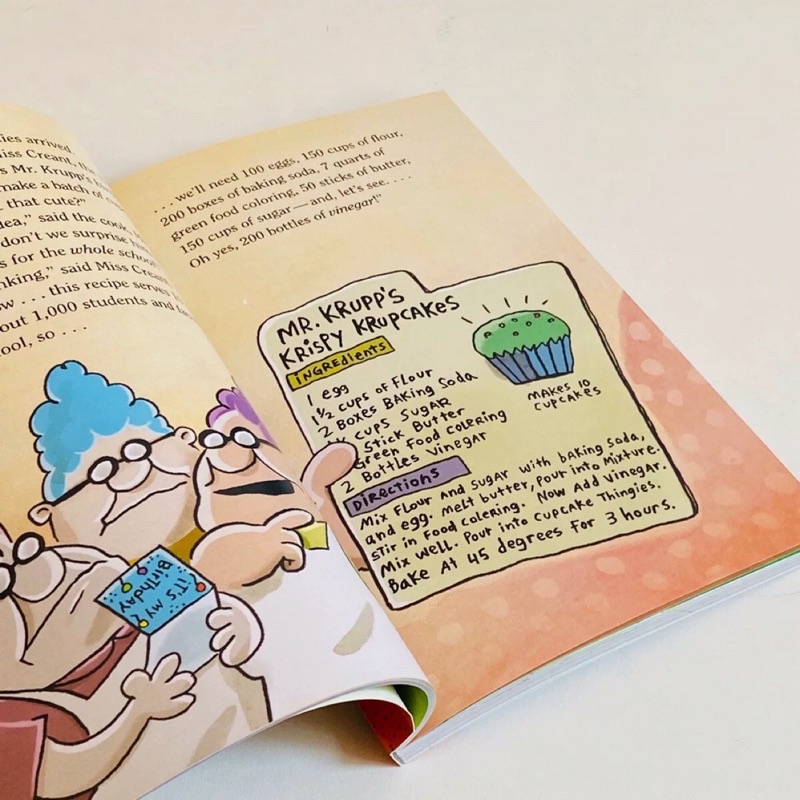 ies arrived
Miss Creant, the
s Mr. Krupp's
make a batch of
that cute?"
dea," said the cook,
don't we surprise
s for the whole school
nking," said Miss Crea
ow . . . this recipe serves
out 1,000 students and
ool, so . . .
. . . we'll need 100 eggs, 150 cups of flour,
200 boxes of baking soda, 7 quarts of
green food coloring, 50 sticks of butter,
150 cups of sugar—and, let's see. . . .
Oh yes, 200 bottles of vinegar!"
MR. KRUPP'S
KRISPY KRUPCAKES
INGREDIENTS
1 egg
1½ cups of Flour
2 Boxes Baking Soda
cups Sugar
Stick Butter
Green Food Colering
2 Bottles Vinegar
MAKES 10
CUPCAKES
DIRECTIONS
Mix Flour and Sugar with baking Soda,
and egg. Melt butter, pour into Mixture.
Stir in Food Colering. Now Add Vinegar.
Mix Well. Pour into Cupcake Thingies.
Bake At 45 degrees For 3 hours.
IT'S MY
Birthday